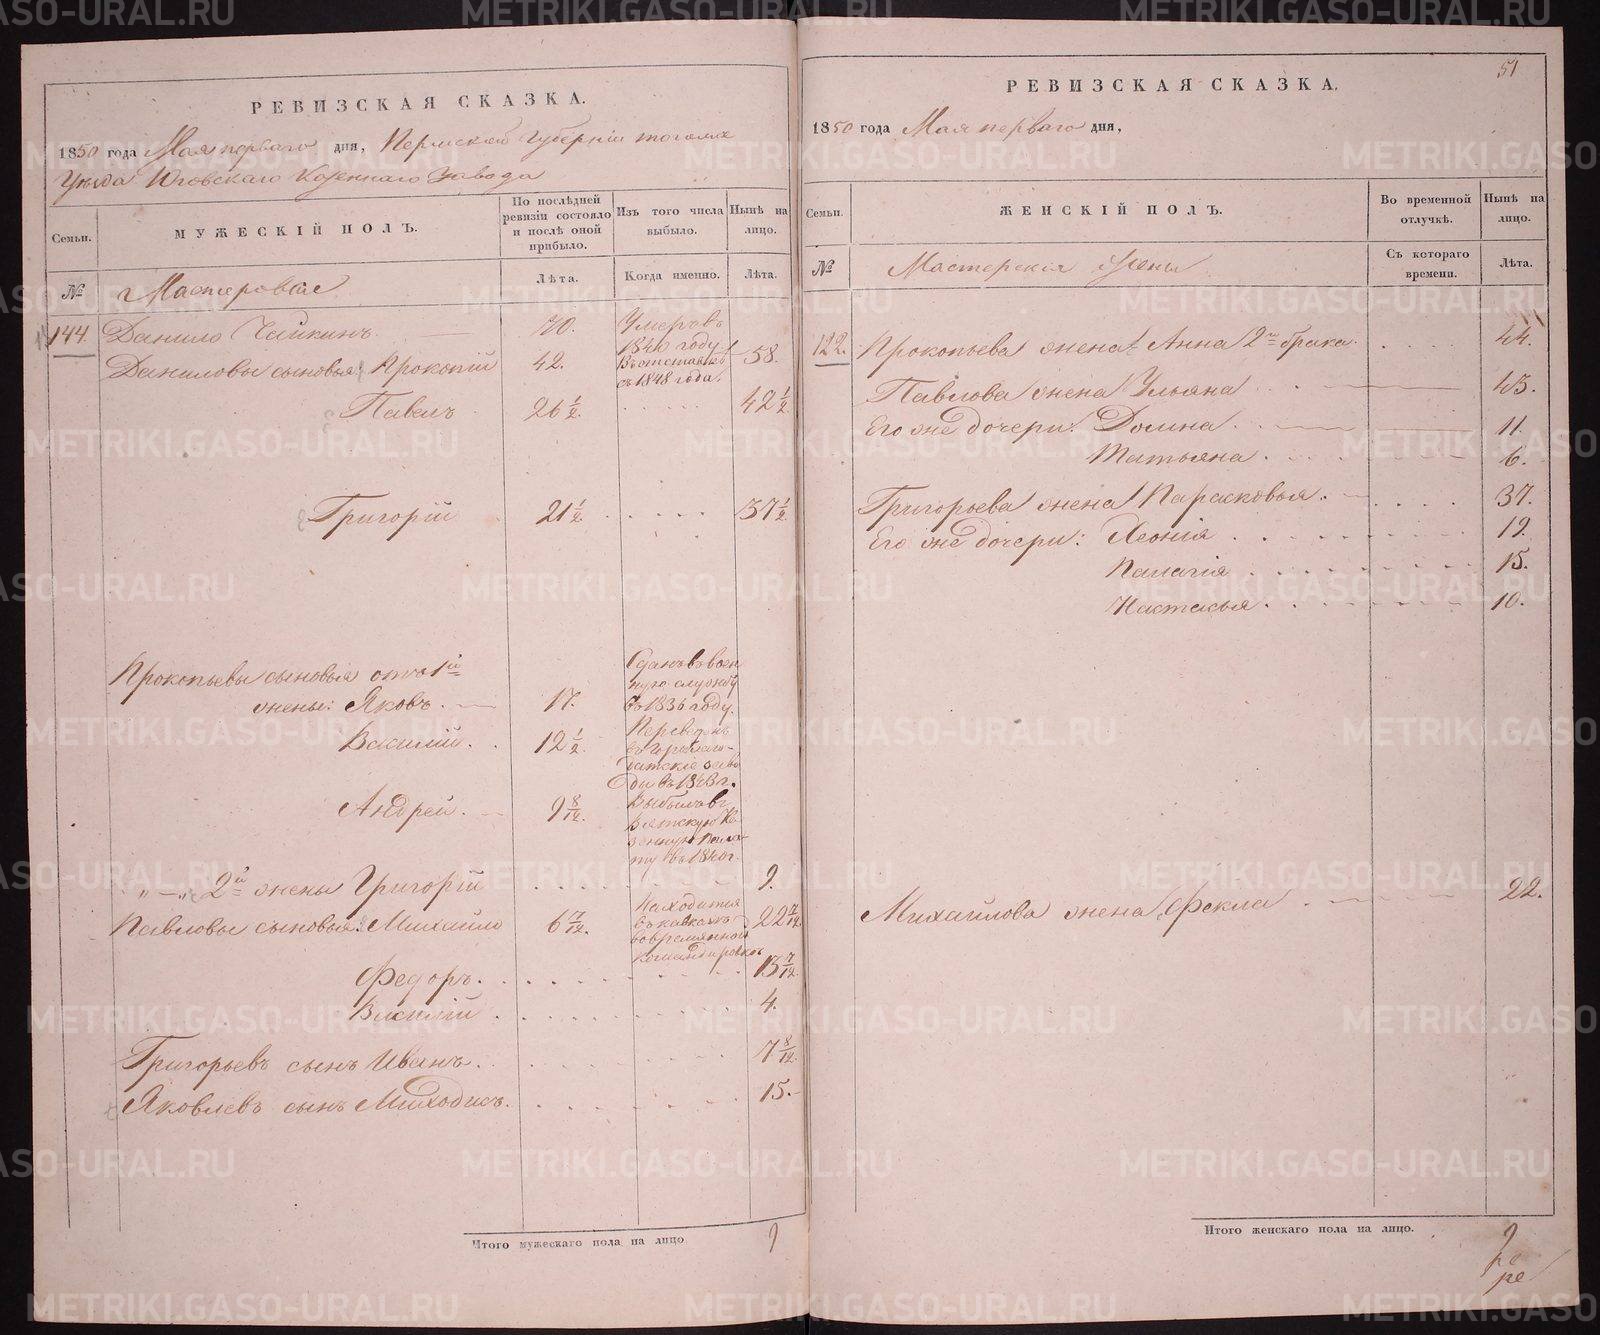 РЕВИЗСКАЯ СКАЗКА.
1850 года Мая перваго дня, Пермской Губернiи тогоже
Уѣзда Юговскаго Казеннаго Завода
Семьи.
МУЖЕСКIЙ ПОЛЪ.
По послѣдней ревизiи состояло и послѣ оной прибыло.
Изъ того числа выбыло.
Нынѣ на лицо.
№
Мастеровые
Лѣта.
Когда именно.
Лѣта.
144. Данило Чайкинъ. 70. Умеръ въ 1840 году
Даниловы сыновья: Прокопiй 42. Въ отставкѣ съ 1848 года. 58.
Павелъ 26 1/2. 42 1/2
Григорiй 21 1/2. 37 1/2
Прокопьевы сыновья отъ 1й
жены: Яковъ. 17. Сданъ въ военную службу въ 1836 году.
Василiй. 12 1/2. Переведенъ въ Гороблагодатскiе заводы въ 1843 г.
Андрей. 9 8/12. Выбылъ въ Вятскую Казенную Палату въ 1840 г.
„ — „ 2й жены Григорiй 9.
Павловы сыновья: Михайло 6 7/12. Находится въ кавказѣ во временной командировкѣ 22 7/12
Федоръ. 15 7/12
Василiй 4.
Григорьевъ сынъ Иванъ. 7 8/12.
Яковлевъ сынъ Миходисъ. 15.
Итого мужескаго пола на лицо 9
51
РЕВИЗСКАЯ СКАЗКА.
1850 года Мая перваго дня,
Семьи.
ЖЕНСКIЙ ПОЛЪ.
Во временной отлучкѣ.
Нынѣ на лицо.
№
Мастерскiя жены
Съ котораго времени.
Лѣта.
122. Прокопьева жена: Анна 2го брака. 44.
Павлова жена Ульяна 43.
Его же дочери: Домна. 11.
Татьяна. 6.
Григорьева жена Парасковья. 37.
Его же дочери: Хеонiя 19.
Палагiя 15.
Настасья. 10.
Михайлова жена Фекла 22.
Итого женскаго пола на лицо. 9
METRIKI.GASO-URAL.RU